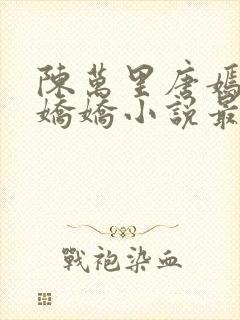 陳萬里唐嫣
嬌嬌小說最
戰袍染血